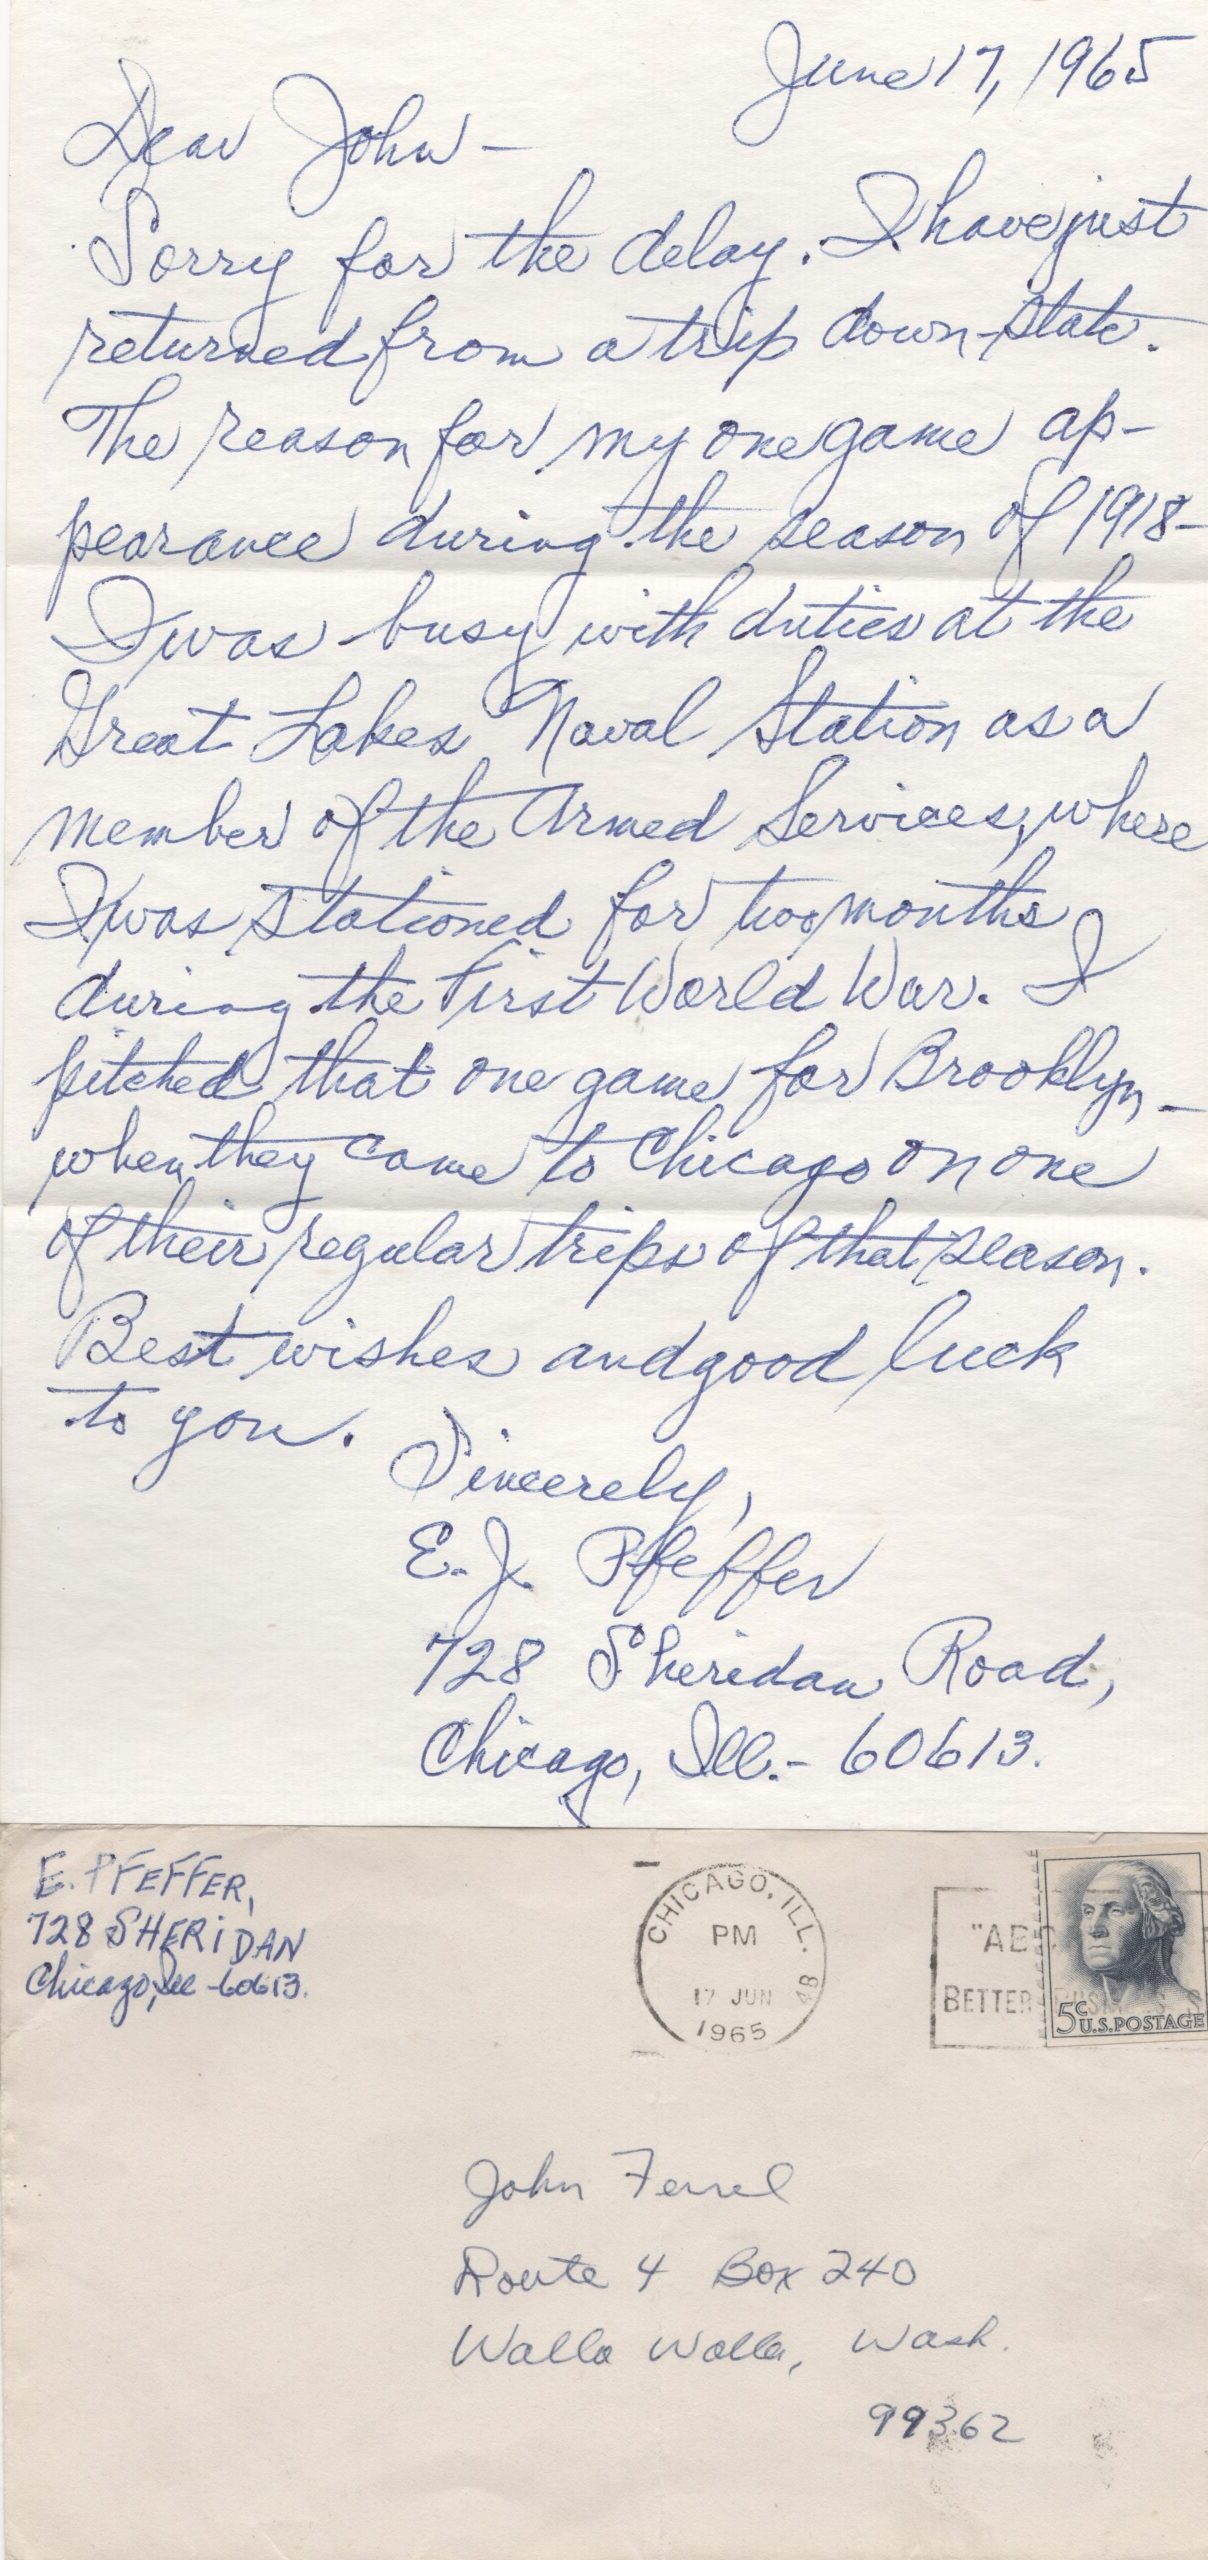 June 17, 1965
Dear John -
Sorry for the delay. I have just
returned from a trip down-state.
The reason for my one game ap-
pearance during the season of 1918-
I was busy with duties at the
Great Lakes Naval Station as a
member of the Armed Services, where
I was stationed for two months
during the First World War. I
pitched that one game for Brooklyn -
when they came to Chicago on one
of their regular trips of that season.
Best wishes and good luck
to you.
Sincerely,
E. J. Pfeffer
728 Sheridan Road,
Chicago, Ill. - 60613.
E. PFEFFER,
728 SHERIDAN
Chicago, Ill - 60613.
CHICAGO, ILL.
PM
17 JUN
1965
BETTER
5¢ U.S. POSTAGE
John Ferrel
Route 4 Box 240
Walla Walla, Wash.
99362